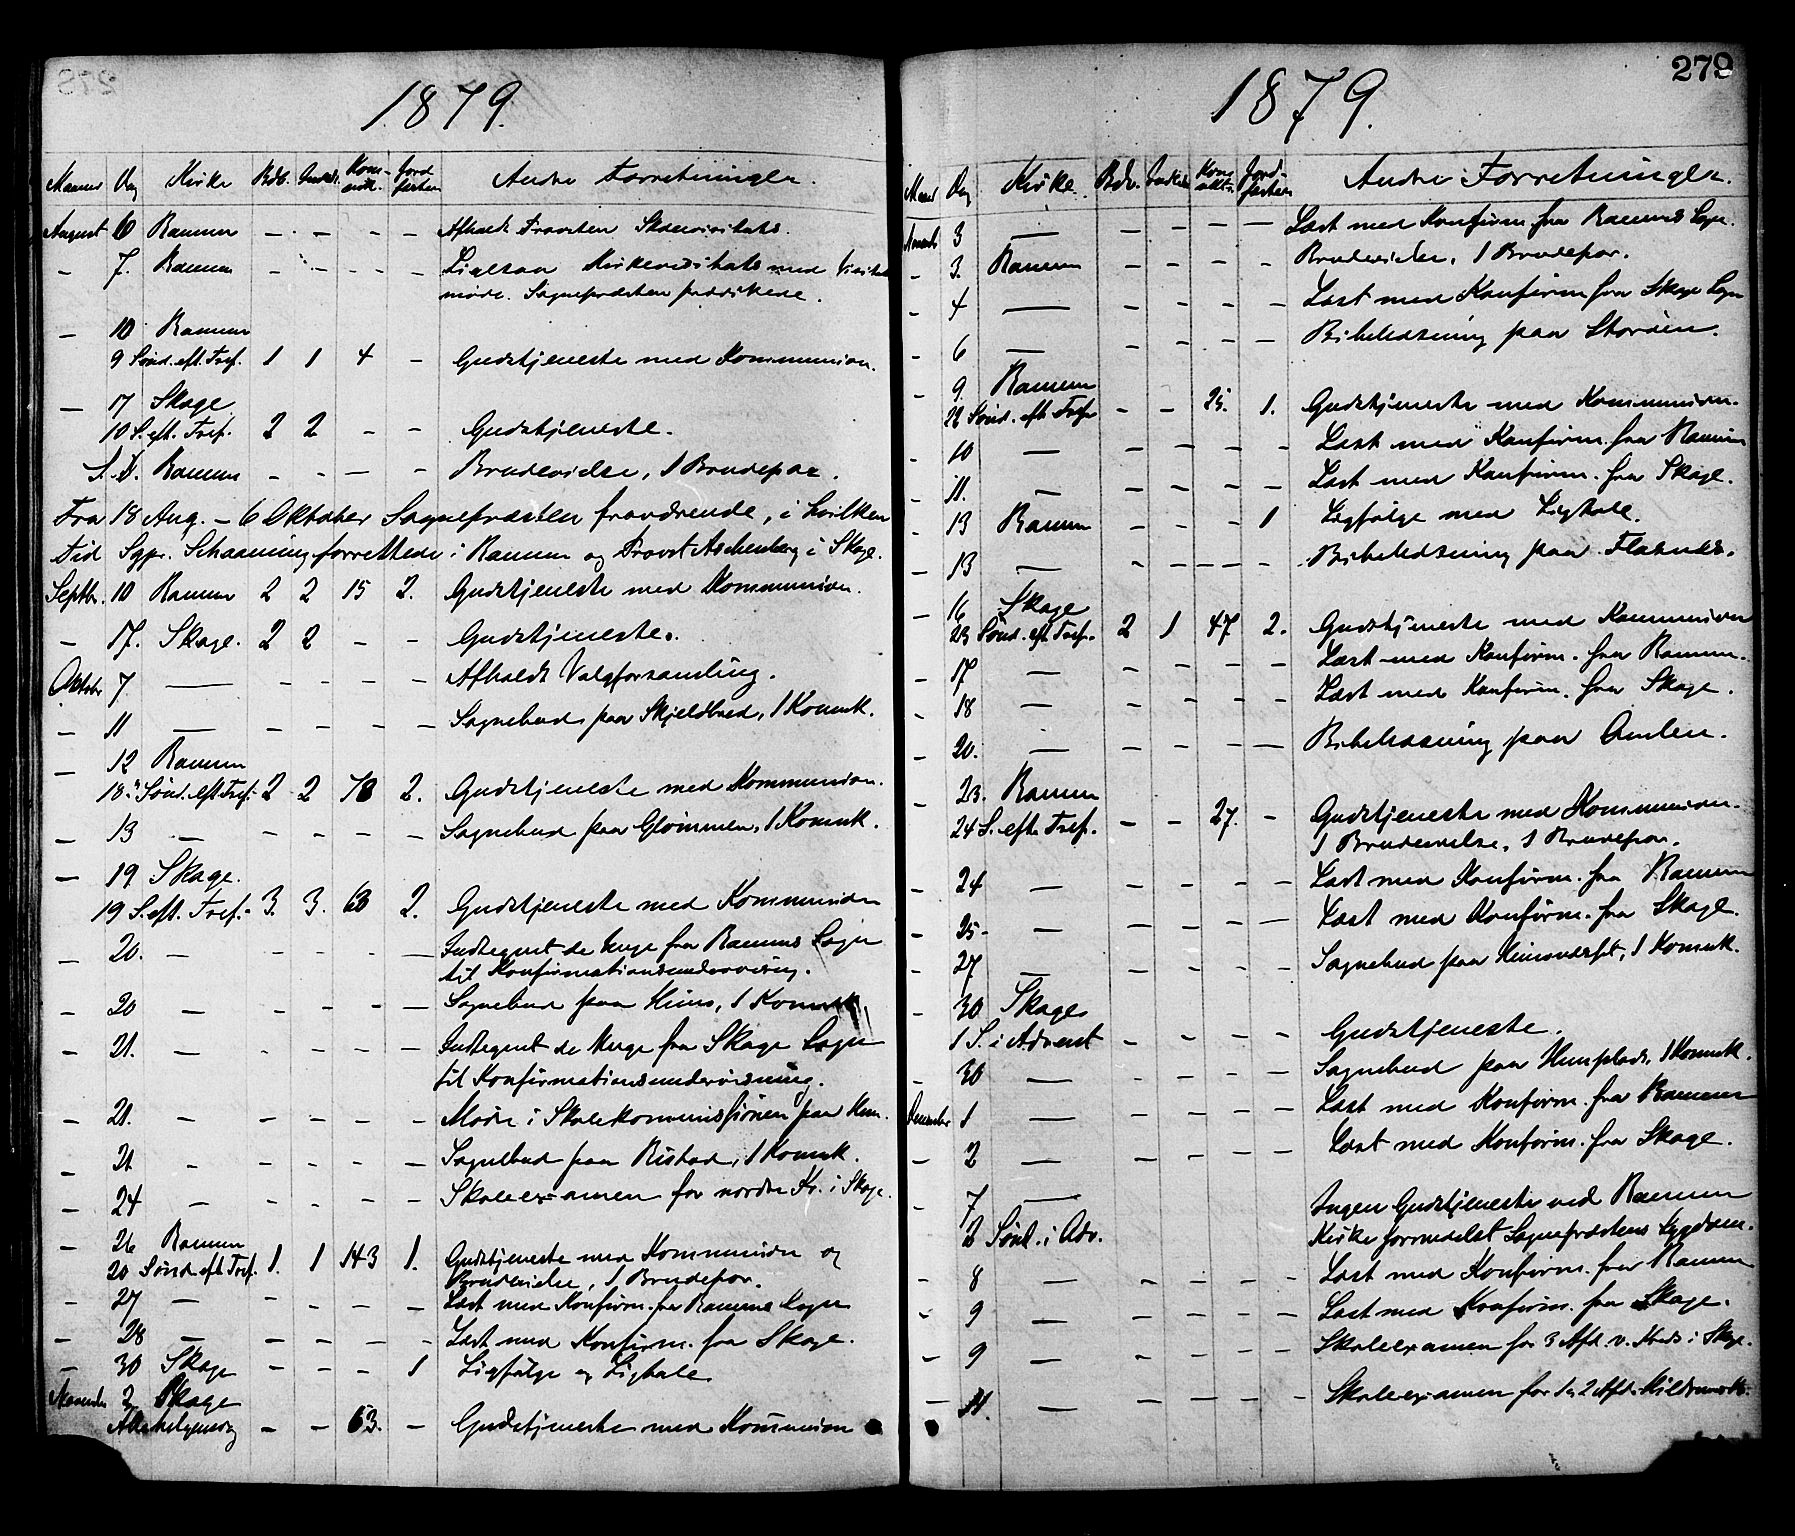 1879.
Maaned Dag Kirke Bdb. Introd. Kom-munik. Jord-festen Andre Forretninger.
August 6 Ranum - - - - Afholdt Provsten Skolevisitats.
- 7. Ranum - - - - Ligesaa Kirkevisitats med Visitats
møde. Sognepræsten prædikede.
- 10 Ranum
9 Sønd. eft. Tref. 1 1 4 - Gudstjeneste med Kommunion.
- 17 Skage
10 S. eft. Tref. 2 2 - - Gudstjeneste.
S. D. Ranum - - - - Brudevielse, 1 Brudepar.
Fra 18 Aug. - 6 Oktober Sognepræsten fraværende, i hvilken
Tid Sgpr. Schaanning forrettede i Ranum og Provst Aschenberg i Skage.
Septbr. 10 Ranum 2 2 15 2. Gudstjeneste med Kommunion.
- 17. Skage. 2 2 - - Gudstjeneste.
Oktober 7 — - - - - Afholdt Valgforsamling.
- 11 — - - - - Sognebud paa Skjeldbred, 1 Komuk.
- 12 Ranum
18. Sønd. eft Tref. 2 2 78 2. Gudstjeneste med Kommunion.
- 13 — - - - - Sognebud paa Glømmen, 1 Komuk.
- 19 Skage.
19 S. eft. Tref. 3. 3. 63 2. Gudstjeneste med Kommunion
- 20. - - - - - Indtegnet de Unge fra Ranums Sogn
til Konfirmationsundervisning.
- 20 - - - - - Sognebud paa Hunn, 1 Komuk.
- 21. - - - - - Indtegnet de Unge fra Skage Sogn
til Konfirmationsundervisning.
- 21. - - - - - Møde i Skolekommissionen paa Hun.
- 21 - - - - - Sognebud paa Ristad, 1 Komuk.
- 24 - - - - - Skoleexamen for nordre Kr. i Skage.
- 26 Ranum
20 Sønd eft Tref. 1. 1 143 1. Gudstjeneste med Kommunion og
Brudevielse, 1 Brudepar.
- 27 - - - - - Læst med Konfirm. fra Ranums Sogn
- 28 - - - - - Læst med Konfirm. fra Skage.
- 30 Skage - - - 1 Ligfølge og Ligtale
Novembr 2 Skage
Allehelgensdag - - 63. - Gudstjeneste med Kommunion
279
1879.
Maaned Dag Kirke. Bdb. Introd. Kom-munik. Jord-festen Andre Forretninger.
Novemb 3 — - - - - Læst med Konfirm fra Ranums Sogn.
- 3. Ranum - - - - Brudevielse, 1 Brudepar.
- 4 — - - - - Læst med Konfirm fra Skage Sogn
- 6 — - - - - Bibellæsning paa Storøen.
- 9. Ranum
22 Sønd. eft. Tref - - 25. 1. Gudstjeneste med Kommunion.
- 10 — - - - - Læst med Konfirm. fra Ranum
- 11. — - - - - Læst med Konfirm. fra Skage.
- 13 Ranum - - - 1 Ligfølge med Ligtale.
- 13 — - - - - Bibellæsning paa Flasnes.
- 16 Skage
23 Sønd. eft Tref. 2 1 47 2. Gudstjeneste med Kommunion
- 17 — - - - - Læst med Konfirm. fra Ranum.
- 18 — - - - - Læst med Konfirm. fra Skage.
- 20. — - - - - Bibellæsning paa Amlien.
- 23. Ranum
24 S. eft. Tref. - - 27. - Gudstjeneste med Kommunion.
1 Brudevielse, 1 Brudepar.
- 24 — - - - - Læst med Konfirm. fra Ranum
- 25 - — - - - - Læst med Konfirm. fra Skage.
- 27 — - - - - Sognebud paa 1 Komuk.
- 30 Skage
1 S. i Advent - - - - Gudstjeneste.
- 30 — - - - - Sognebud paa Hunplads, 1 Komuk.
December 1 — - - - - Læst med Konfirm. fra Ranum
- 2 — - - - - Læst med Konfirm. fra Skage.
- 7 —
2 Sønd. i Adv. Ingen Gudstjeneste ved Ranum
Kirke formedelst Sognepræstens Sygdom.
- 8 — - - - - Læst med Konfirm. fra Ranum
- 9 — - - - - Læst med Konfirm. fra Skage.
- 9 — - - - - Skoleexamen for 3 Afd. v. Kreds i Skage.
- 11. — - - - - Skoleexamen for 1 og 2 Afd.